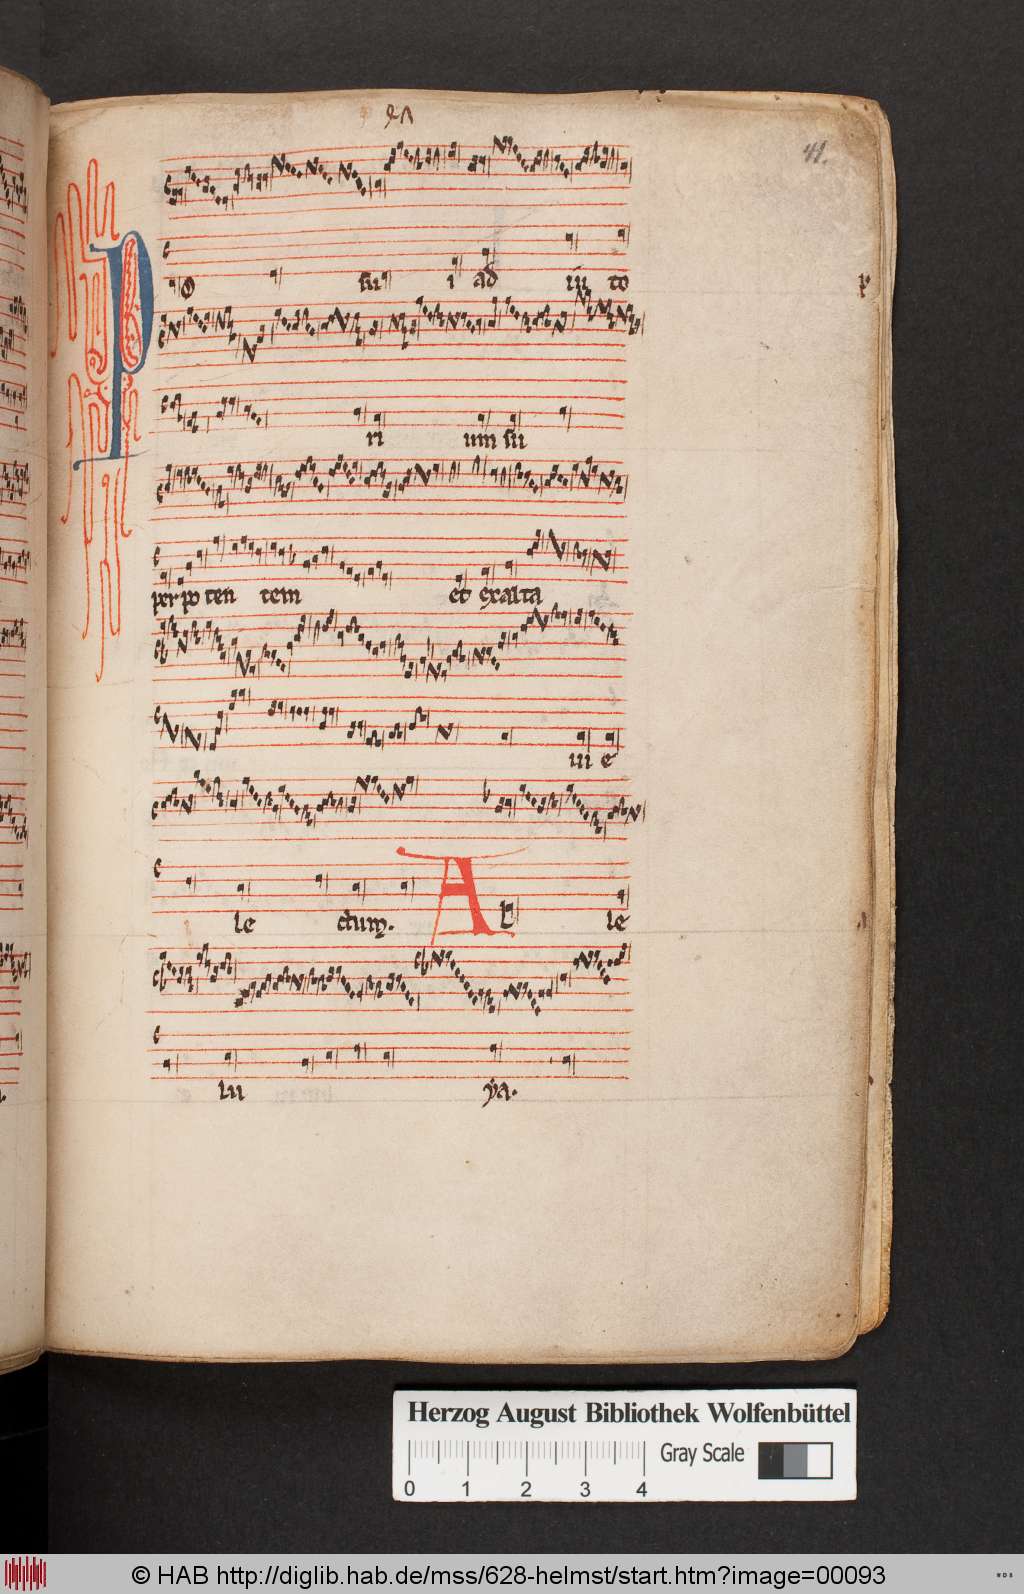 41.
PO sui i ad iu to
p
ri um su
per po ten tem et exalta
ui e
le ctum. AL le
lu ya.
Herzog August Bibliothek Wolfenbüttel
Gray Scale
0 1 2 3 4
© HAB http://diglib.hab.de/mss/628-helmst/start.htm?image=00093